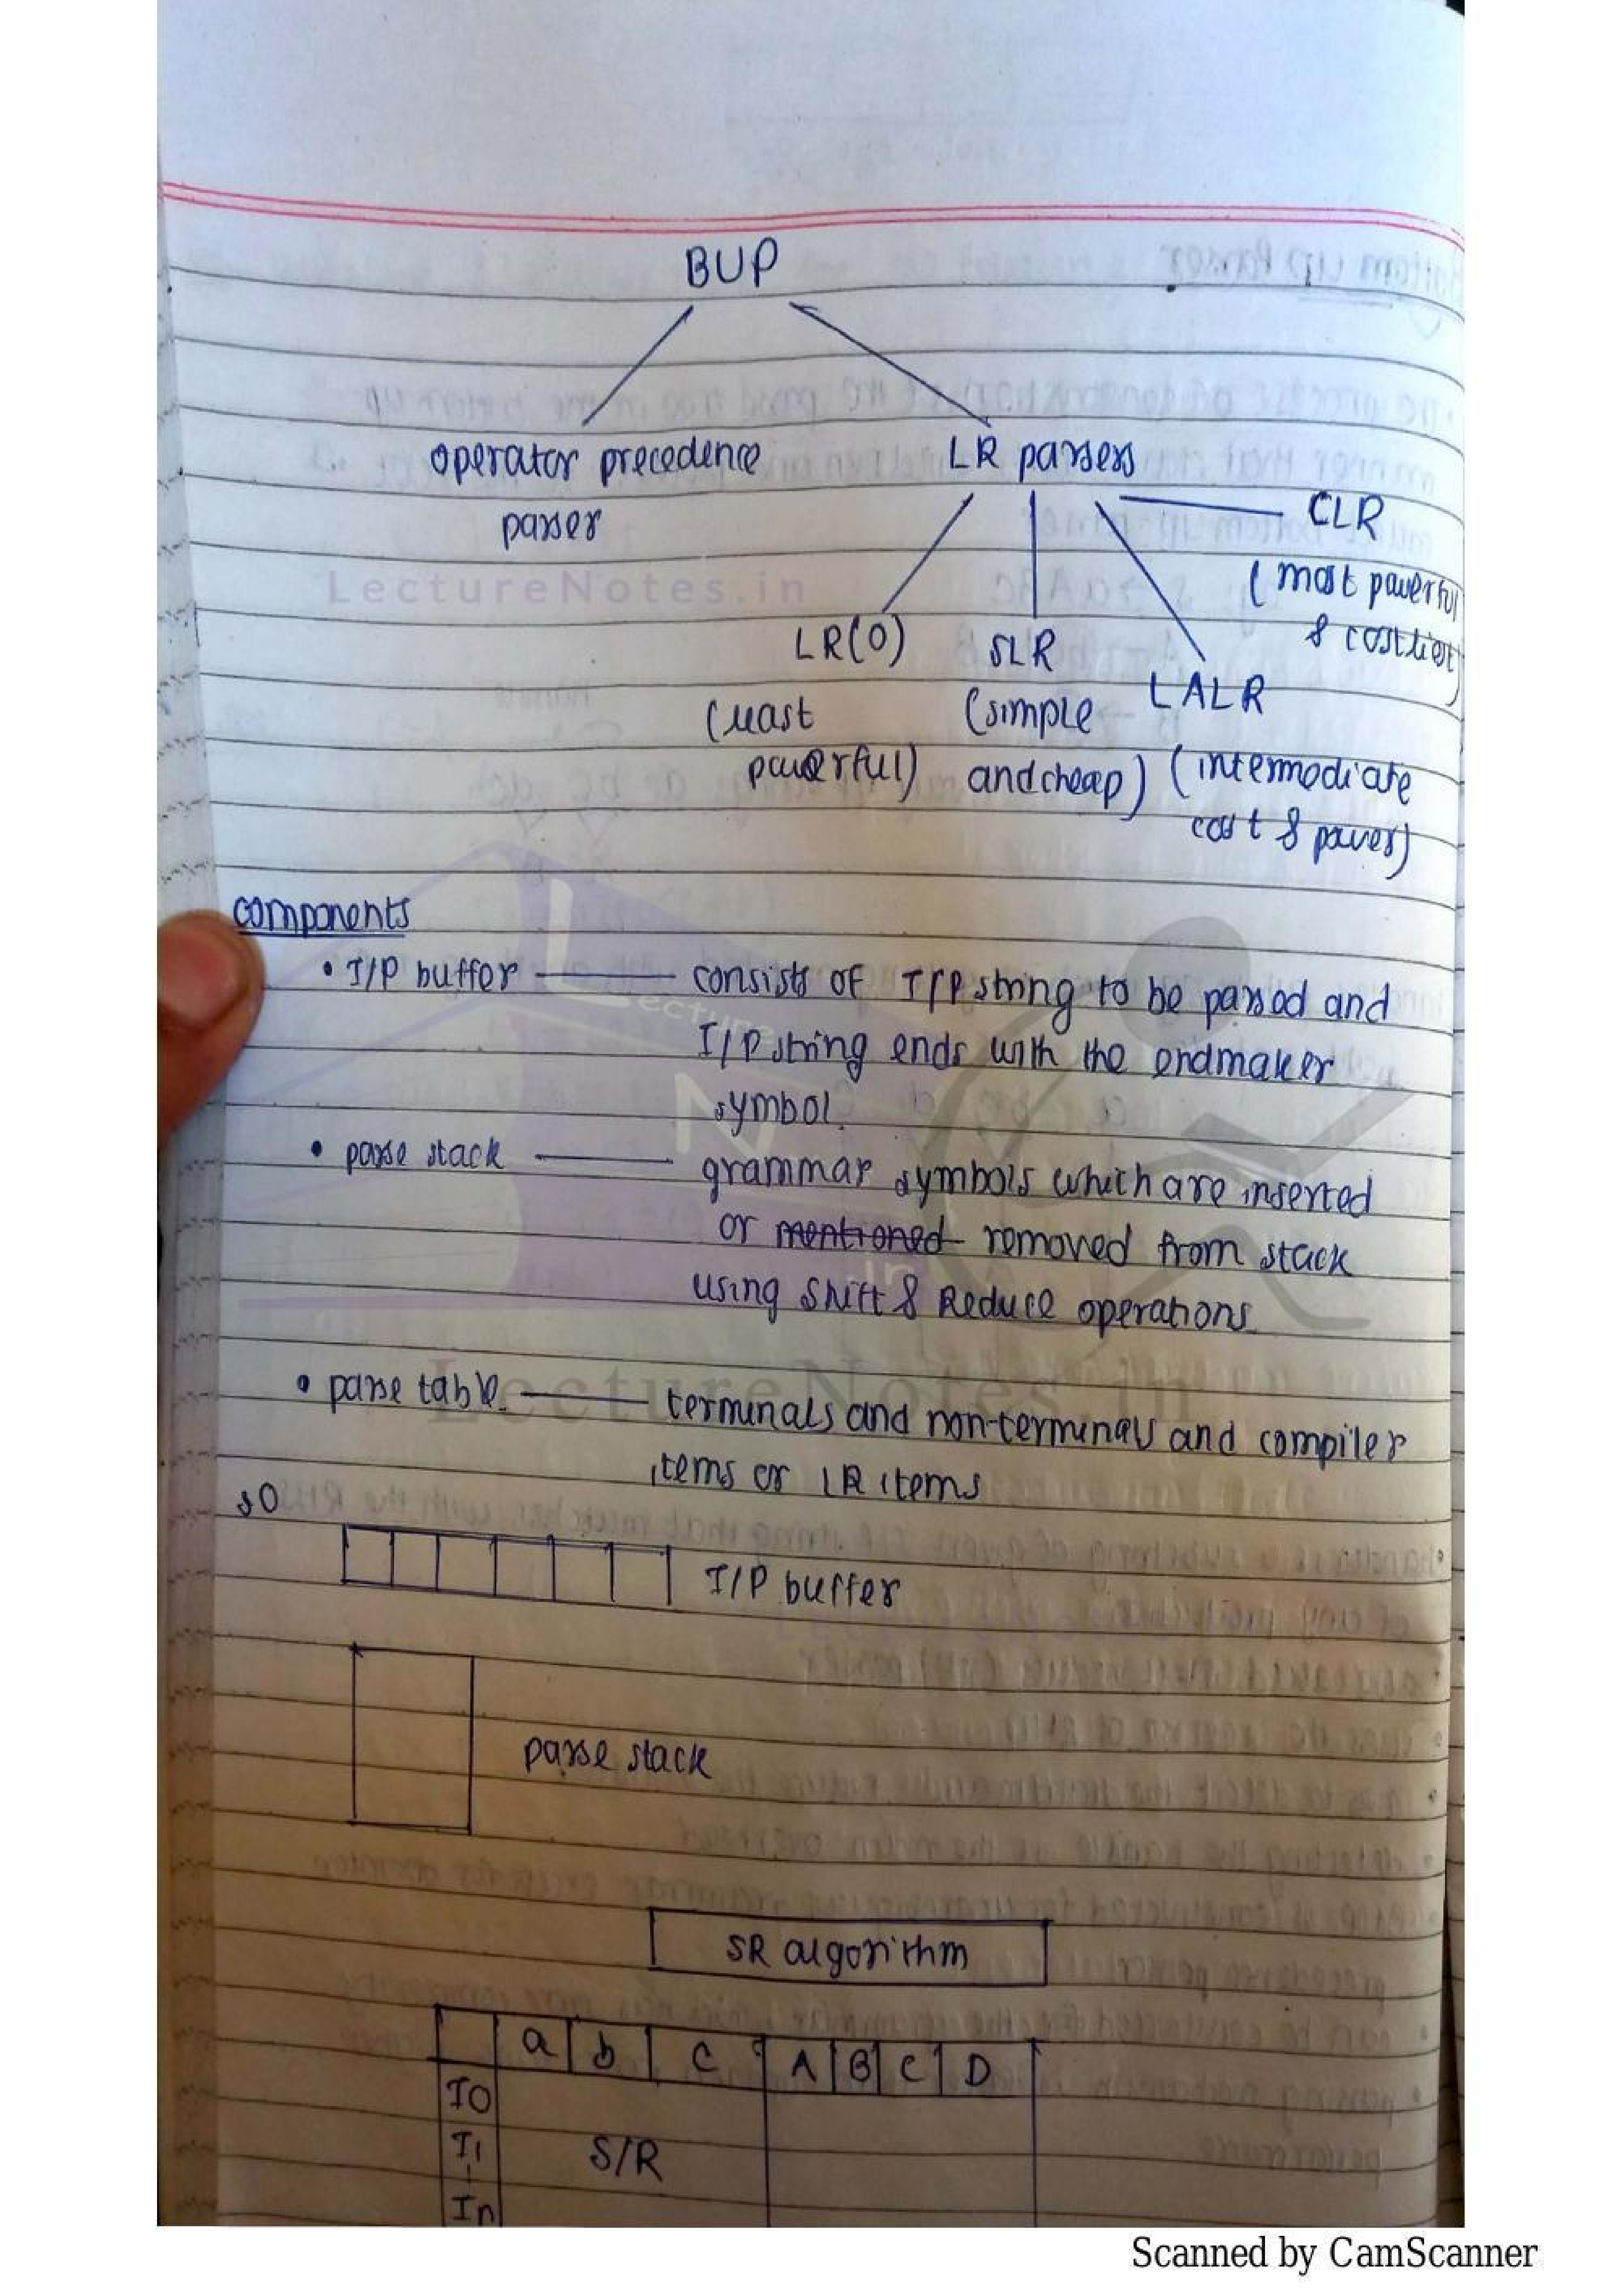 BUP
operator precedence LR parsers
parser CLR
LectureNotes.in (most powerful
LR(0) SLR & costliest)
LALR
(least (simple
powerful) and cheap) (intermediate
cost & power)
components
• I/P buffer — consists of I/P string to be parsed and
I/P string ends with the endmaker
symbol.
• parse stack — grammar symbols which are inserted
or mentioned removed from stack
using Shift & Reduce operations
• parse table — terminals and non-terminals and compiler
LectureNotes.in
items or LR items
so
I/P buffer
parse stack
SR algorithm
a b c A B C D
I0
I1 S/R
In
Scanned by CamScanner